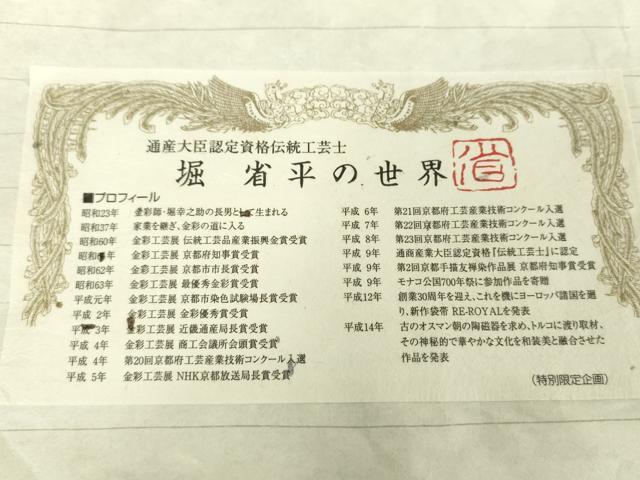 通産大臣認定資格伝統工芸士
堀 省平の世界
■プロフィール
昭和23年 金彩師・堀幸之助の長男と 生まれる
昭和37年 家業を継ぎ、金彩の道に入る
昭和60年 金彩工芸展 伝統工芸品産業振興金賞受賞
昭和 年 金彩工芸展 京都府知事賞受賞
昭和62年 金彩工芸展 京都市市長賞受賞
昭和63年 金彩工芸展 最優秀金彩賞受賞
平成元年 金彩工芸展 京都市染色試験場長賞受賞
平成 2年 金彩工芸展 金彩優秀賞受賞
平成 3年 金彩工芸展 近畿通産局長賞受賞
平成 4年 金彩工芸展 商工会議所会頭賞受賞
平成 4年 第20回京都府工芸産業技術コンクール入選
平成 5年 金彩工芸展 NHK京都放送局長賞受賞
平成 6年 第21回京都府工芸産業技術コンクール入選
平成 7年 第22回京都府工芸産業技術コンクール入選
平成 8年 第23回京都府工芸産業技術コンクール入選
平成 9年 通商産業大臣認定資格「伝統工芸士」に認定
平成 9年 第2回京都手描友禅染作品展 京都府知事賞受賞
平成 9年 モナコ公国700年祭に参加作品を寄贈
平成12年 創業30周年を迎え、これを機にヨーロッパ諸国を廻
り、新作袋帯 RE-ROYALを発表
平成14年 古のオスマン朝の陶磁器を求め、トルコに渡り取材、
その神秘的で華やかな文化を和装美と融合させた
作品を発表
(特別限定企画)